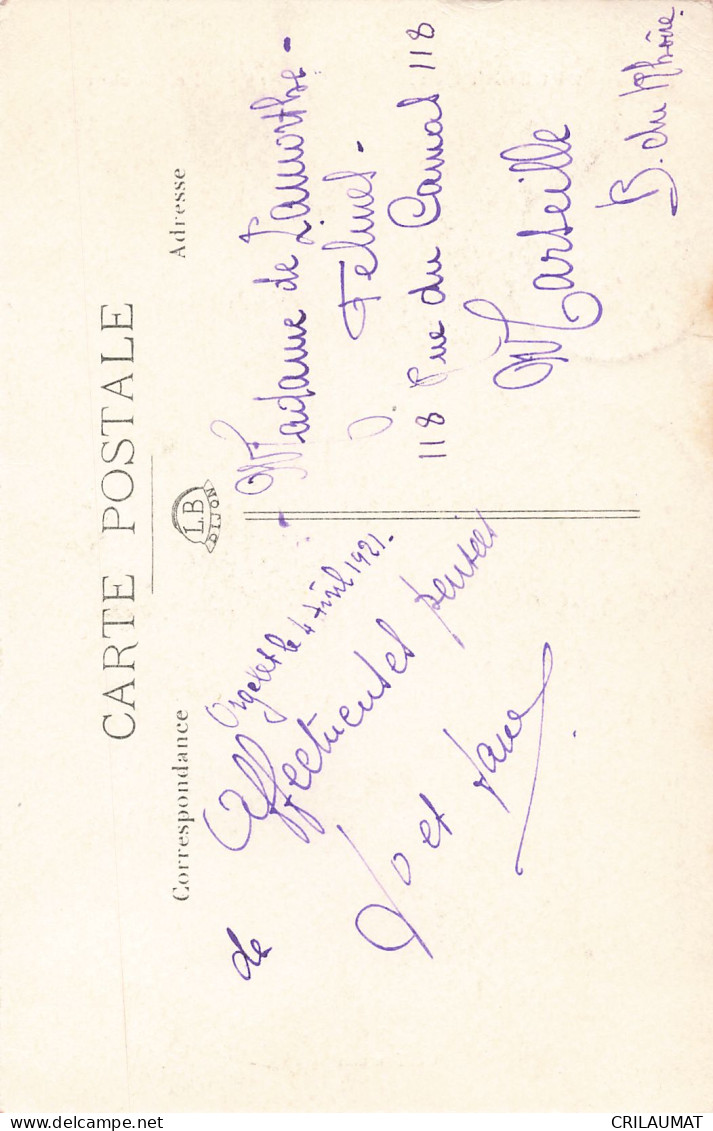 CARTE POSTALE
Correspondance
Adresse
L.B
DIJON
Orgelet le 4 Avril 1921.
de
Affectueuses pensées
Jo et Jane
Madame de Lamorthe-
Felines-
118 Rue du Camas 118
Marseille
B. du Rhône.
CRILAUMAT